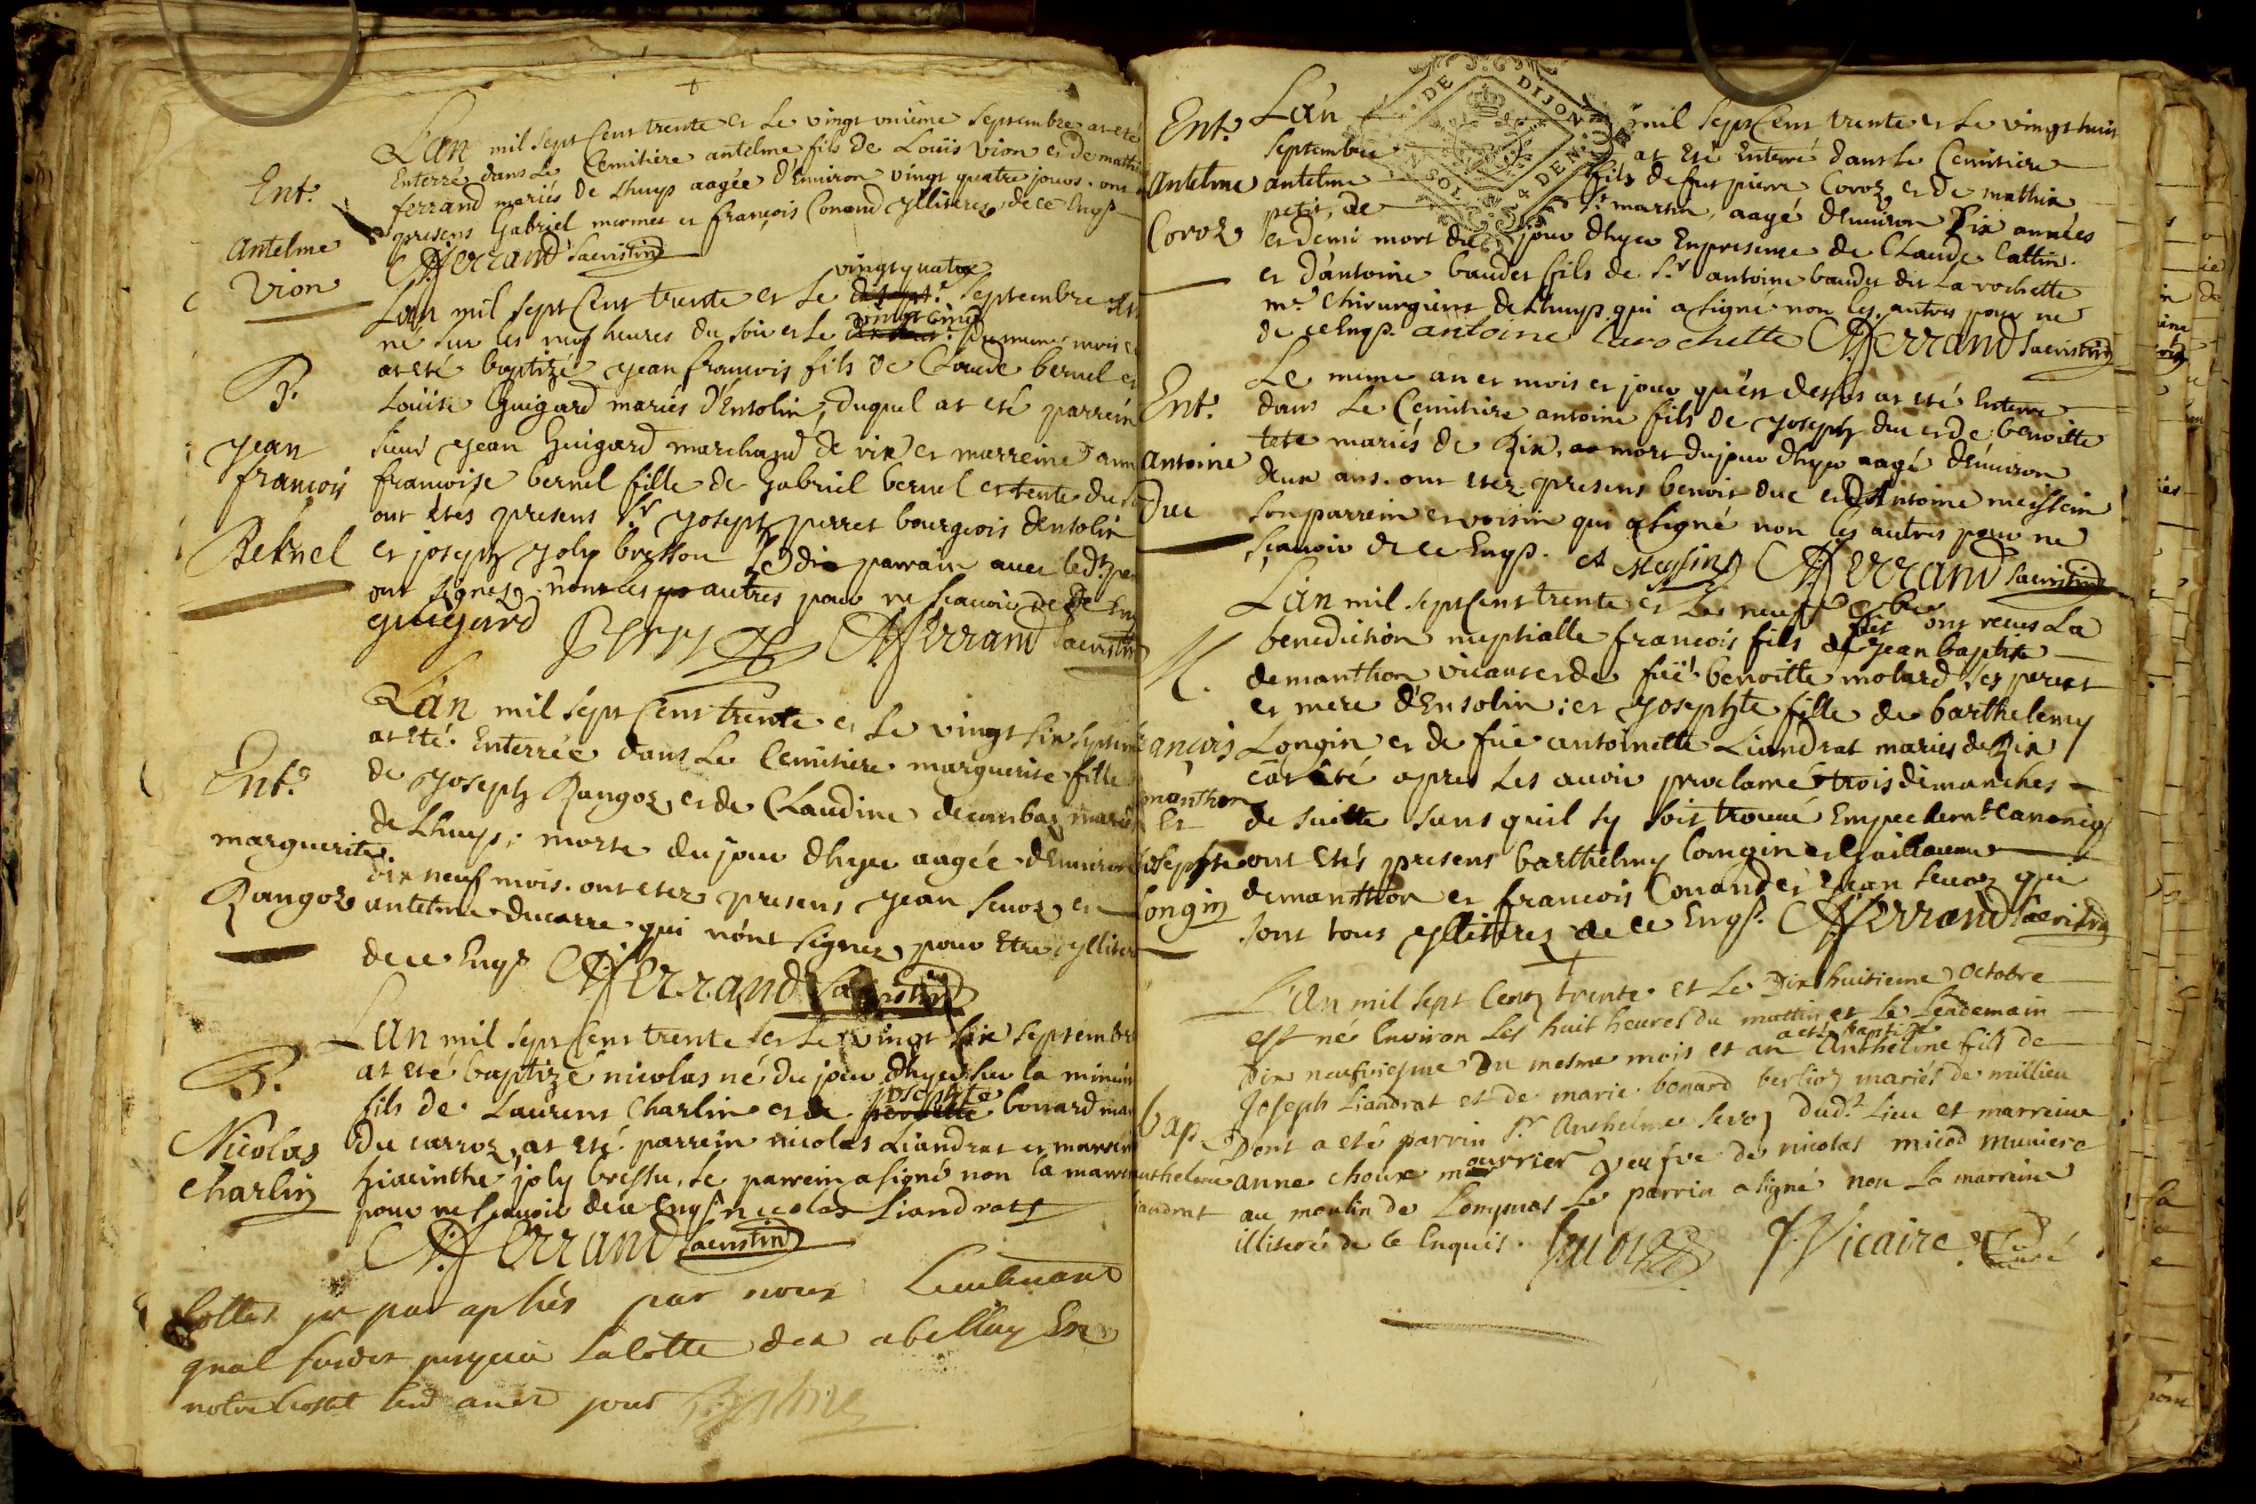 Ent.e
Antelme
Vion
Lan mil sept Cent trente et Le vingt unieme Septembre at eté
Enterré dans Le Cemitiere antelme fils de Loüis Vion et de mathi
ferrand mariés de Lhuys aagée d'Environ vingt quatre jours. ont
presens Gabriel mermet et françois Conand ylliterez de ce Enqs
Ferrand Sacristin
B.
Jean
françois
Bernel
Lan mil sept Cent trente et Le vingt quatre Septembre est
né sur les neuf heures du soir et le vingt cinq du meme mois et
at eté baptizé jean françois fils de Claude bernel et
Loüise Guigard mariés d'Ensolin, duquel at eté parrein
sieur jean Guigard marchand de rix et marreine ann
françoise bernel fille de Gabriel bernel et tente du
ont etés presens Sr joseph perret bourgeois d'Ensolin
et joseph joly bresson Ledit parrain avec ledt per
ont signez non les autres pour ne scavoir de ce En
guigard Ferrand Sacristin
Ent.e
marguerite
Rangoz
Lan mil sept Cent trente et Le vingt six septem
at eté Enterrée dans Le Cemitiere marguerite fille
de joseph Rangoz et de Claudine decombaz marié
de Lhuys; morte du jour dhyer aagée d'Environ
dix neuf mois. ont etez presens jean Sevoz et
antelme ducarre qui n'ont signez pour etre ylliter
de ce Enqs Ferrand Sacristin
B.
Nicolas
Charlin
Lan mil sept Cent trente et Le vingt six septembre
at eté baptizé nicolas né du jour dhyer sur la minuit
fils de Laurent Charlin et de josephte bonard mar
du carroz, at eté parrein nicolas Liandrat et marrein
hiacinthe joly bressu, Le parrein a signé non la marre
pour ne scavoir de ce Enqs nicolas Liandrat
Ferrand Sacristin
Cottes et paraphés par nous Lieutenant
gnal
notre
Ent.e
Antelme
Coroz
Lan mil sept Cent trente et Le vingt huit
Septembre at eté Enterré dans Le Cemitiere
antelme fils de fut pierre Coroz et de mathie
petit, de St martin, aagé d'Environ Dix années
et demi mort du jour dhyer En presence de Claude Cattin
et d'antoine baudet fils de Sr antoine baudet dit La rochette
me Chirurgient de Lhuys qui a signé non les autres pour ne
de ce Enqs. antoine Larochette Ferrand Sacristin
Ent.e
Antoine
Duc
Le meme an et mois et jour qu'est dessus at eté Enterré
dans Le Cemitiere antoine fils de joseph duc et de benoitte
tete mariés de Rix, mort du jour dhyer aagé d'Environ
deux ans. ont etez presens benoit duc et Antoine meissein
son parrein et voisin qui a signé non les autres pour ne
scavoir de ce Enqs. A Meyssin Ferrand Sacristin
M.
ançois
manthon
Et
josephte
Longin
Lan mil sept Cent trente et Le neuf 8bre ont receus La
benediction nuptialle françois fils de jean baptiste
demanthon vivant et de füe benoitte molard ses peres
et mere d'Ensolin: et josephte fille de barthelemy
Longin et de füe antoinette Liandrat mariés de Rix
Cat eté apres Les avoir proclamé trois dimanches
de suitte sans quil sy soit trouvé Empechemt Canoniq
ont etés presens barthelmy Longin et Guillaume
demanthon et françois Conand et jean Sevoz qui
sont tous ylliterez de ce Enqs. Ferrand Sacristin
bap.
anthelme
Liandrat
L'an mil sept Cent trente et Le Dix huitieme Octobre
est né Environ Les huit heures du mattin et Le Lendemain
Dix neufviesme Du mesme mois et an a eté baptizé Anthelme fils de
Joseph Liandrat et de marie bonard berlioz mariés de millieu
Dont a eté parrin Sr Anthelme Sevoz dudt Lieu et marreine
anne choux mourrier veufve de nicolas micod muniere
au moulin de Lompnas Le parrin a signé non La marreine
illiteré de ce Enquis. Sevoz Vicaire Curé
DE DIJON